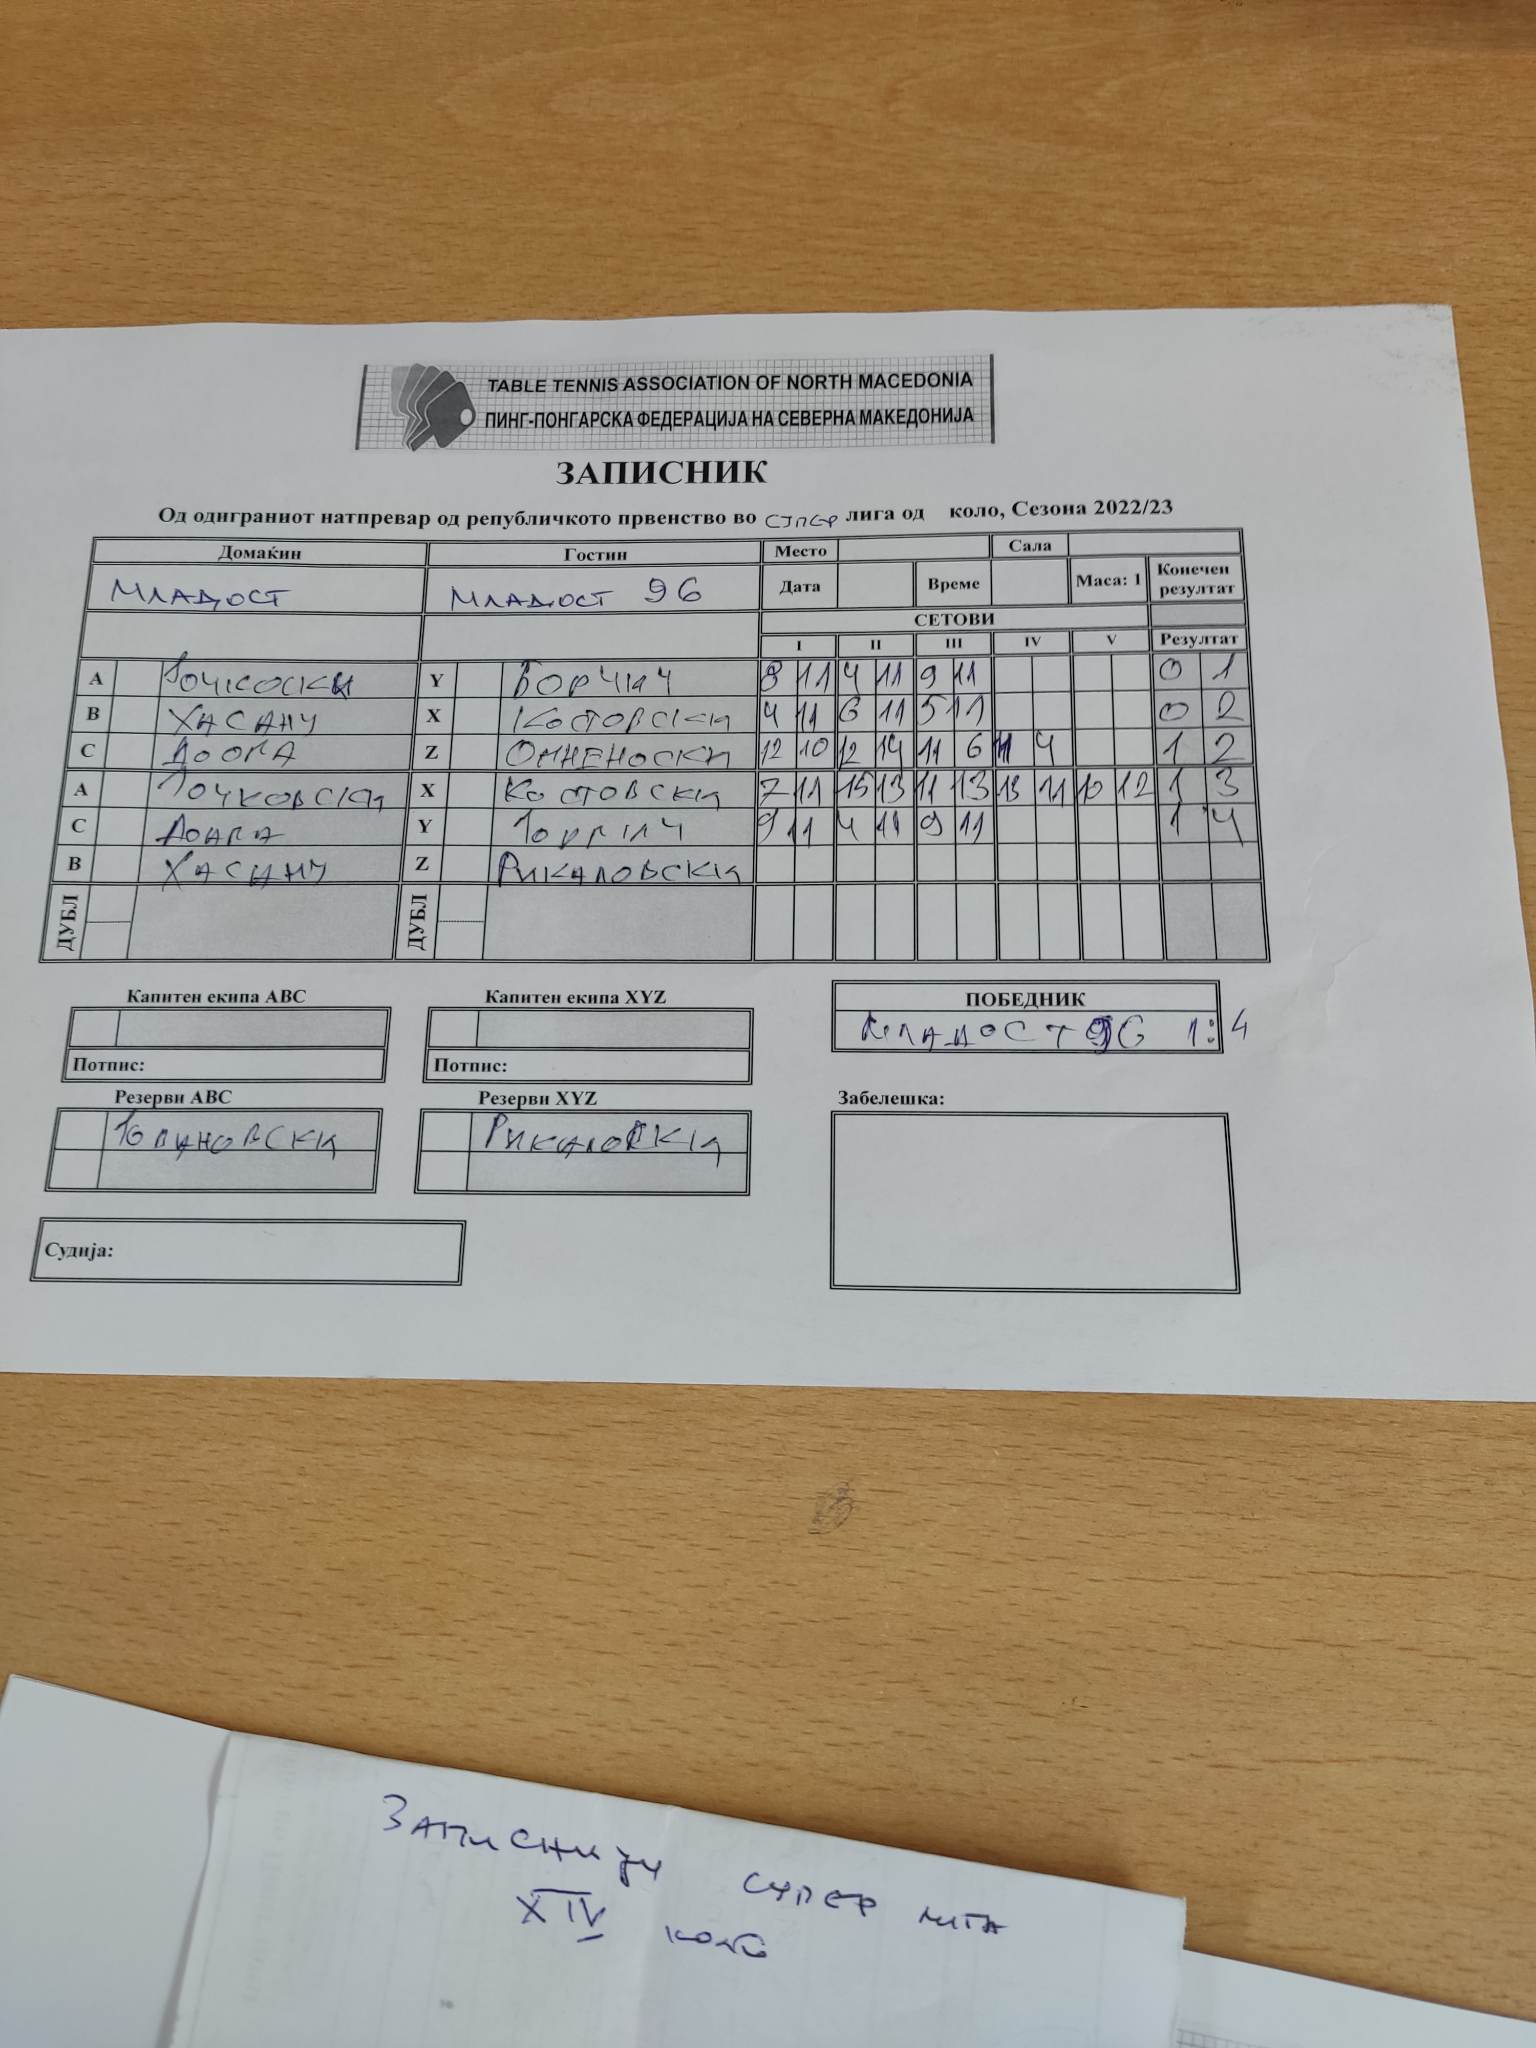 TABLE TENNIS ASSOCIATION OF NORTH MACEDONIA
ПИНГ-ПОНГАРСКА ФЕДЕРАЦИЈА НА СЕВЕРНА МАКЕДОНИЈА
ЗАПИСНИК
Од одиграниот натпревар од републичкото првенство во СУПЕР лига од коло, Сезона 2022/23
Домаќин Гостин Место Сала
МЛАДОСТ МЛАДОСТ 96 Дата Време Маса: 1 Конечен резултат
СЕТОВИ
I II III IV V Резултат
A Y 8 11 4 11 9 11 0 1
B ХАСАНИ X КОСТОВСКИ 4 11 6 11 5 11 0 2
C Z 12 10 12 14 11 6 11 4 1 2
A X КОСТОВСКИ 7 11 15 13 11 13 13 11 10 12 1 3
C Y 9 11 4 11 9 11 1 4
B ХАСАНИ Z РИКАЛОВСКИ
ДУБЛ ДУБЛ
Капитен екипа ABC Капитен екипа XYZ ПОБЕДНИК
МЛАДОСТ 96 1:4
Потпис: Потпис:
Резерви ABC Резерви XYZ Забелешка:
РИКАЛОВСКИ
Судија:
ЗАПИСНИЦИ СУПЕР ЛИГА
XIV КОЛО